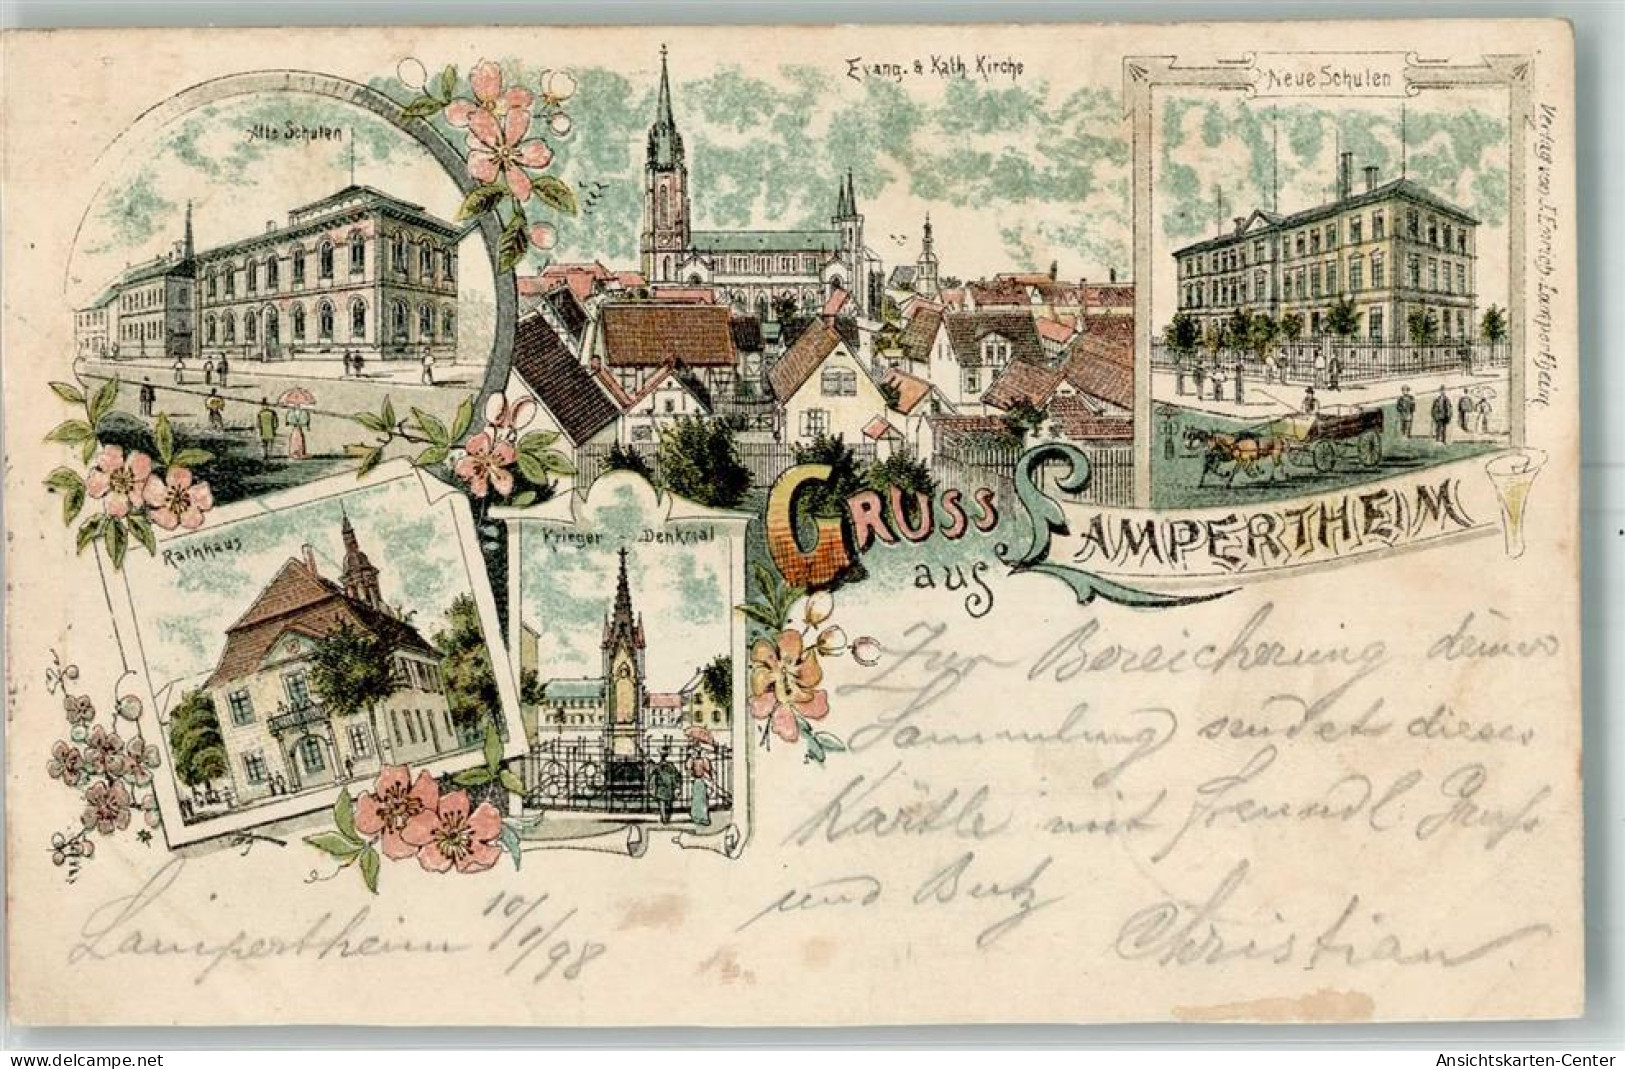 Alte Schulen
Evang. & Kath. Kirche
Neue Schulen
Verlag von J. Emrich Lampertheim
Rathhaus
Krieger-Denkmal
GRUSS aus LAMPERTHEIM
Zur Bereicherung deiner
Sammlung sendet dieses
Kärtle mit freundl. Gruß
und Butz
Christian
Lampertheim 10/1/98
Ansichtskarten-Center